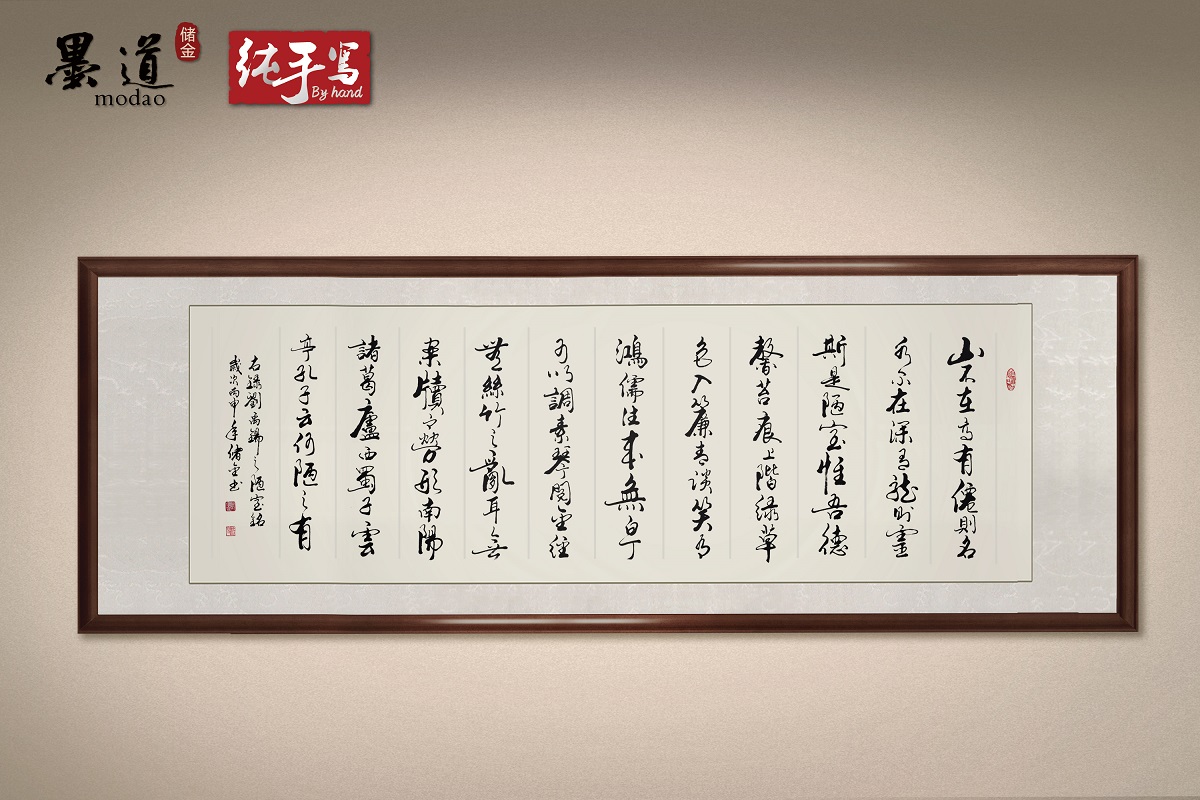 墨道
modao
储金
纯手写
By hand
山不在高有僊則名
水不在深有龍則靈
斯是陋室惟吾德
馨苔痕上階緑草
色入簾青談笑有
鴻儒往來無白丁
可以調素琴閱金經
無絲竹之亂耳無
案牘之勞形南陽
諸葛廬西蜀子雲
亭孔子云何陋之有
右錄劉禹錫之陋室銘
歲次丙申年储金书